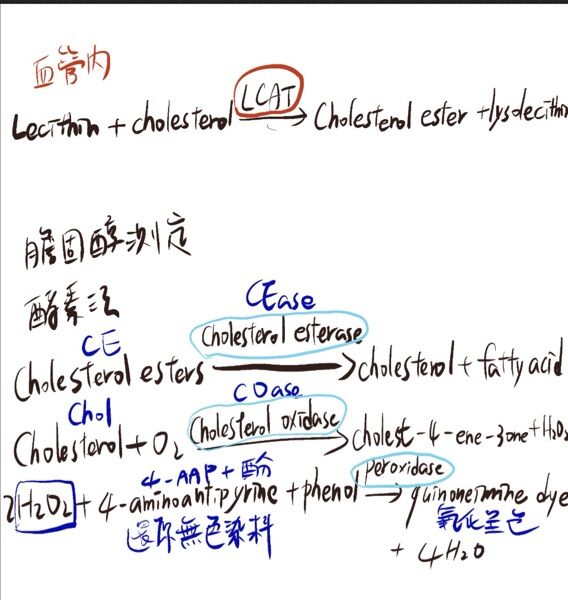 血管內
LCAT
Lecithin + cholesterol → Cholesterol ester + lysolecithin
膽固醇測定
酵素法
CEase
CE
Cholesterol esterase
Cholesterol esters → cholesterol + fatty acid
Chol
COase
Cholesterol oxidase
Cholesterol + O₂ → cholest-4-ene-3one + H₂O₂
4-AAP + 酚
peroxidase
2H₂O₂ + 4-aminoantipyrine + phenol → quinoneimine dye
還原無色染料
氧化呈色
+ 4H₂O